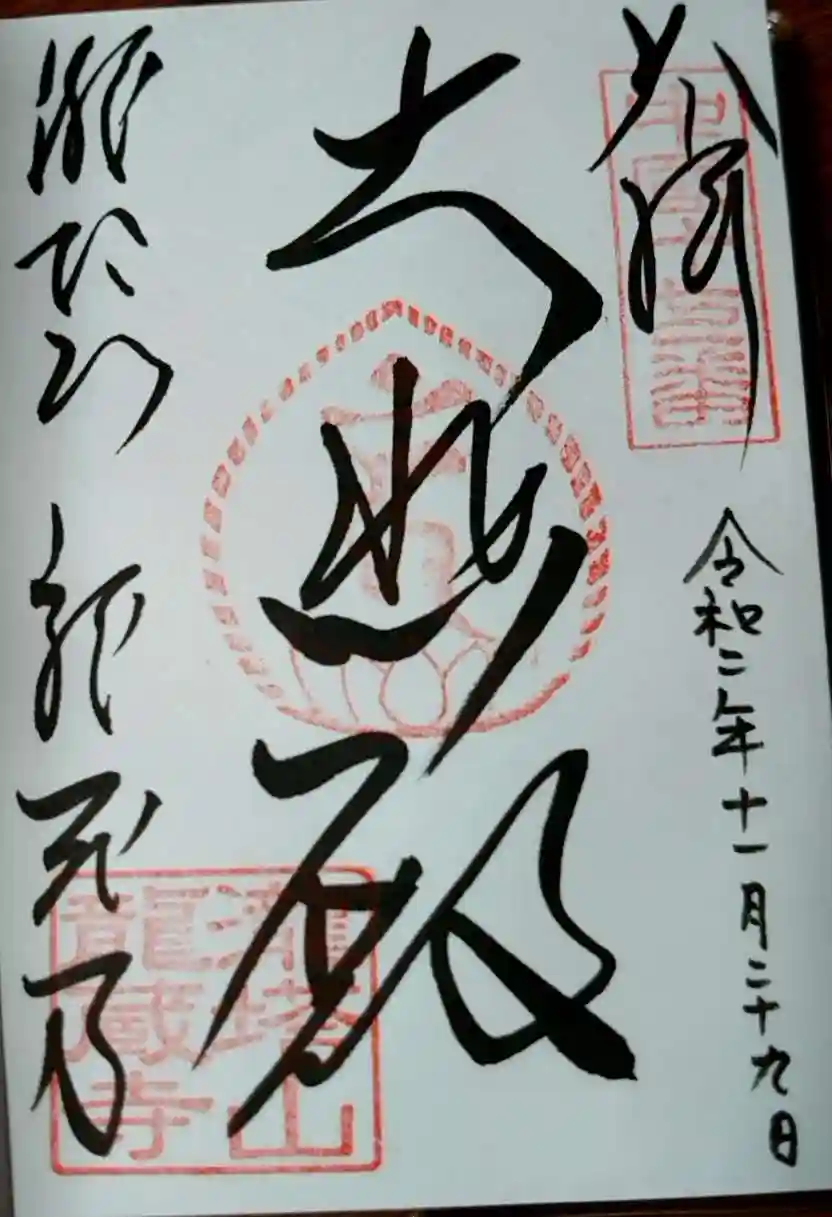 奉拝
令和二年十一月二十九日
大悲殿
瀧塔山 龍蔵寺
瀧塔山
龍蔵寺